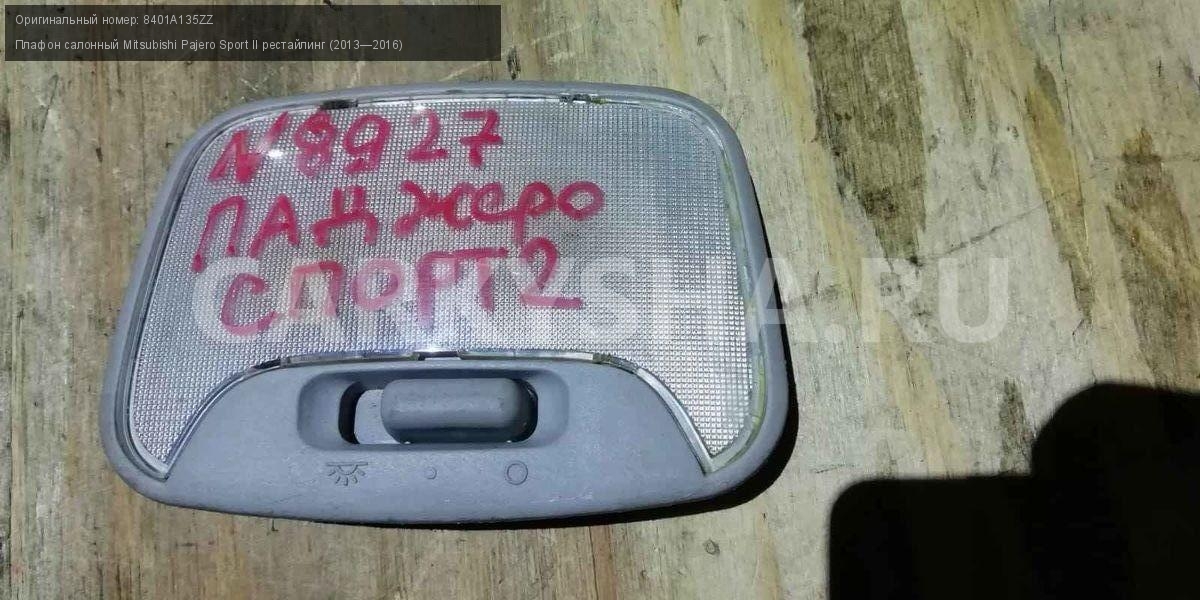 Оригинальный номер: 8401A135ZZ
Плафон салонный Mitsubishi Pajero Sport II рестайлинг (2013—2016)
N9927
ПАДЖеРО
СПОРТ2
CARVSHA.RU